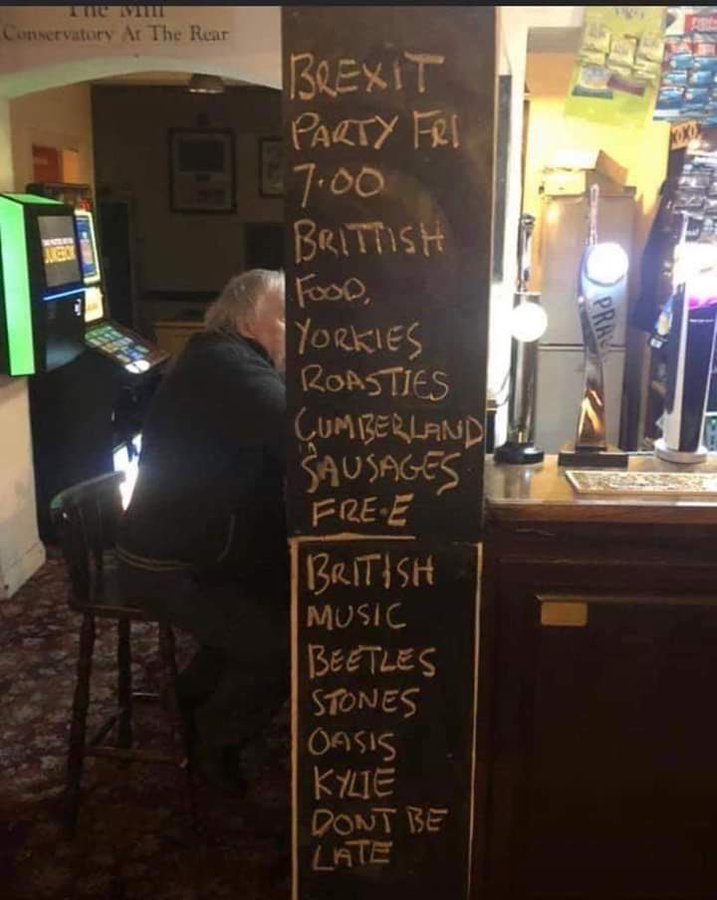 The Mill
Conservatory At The Rear
BREXIT
PARTY FRI
7.00
BRITTISH
FOOD.
YORKIES
ROASTIES
CUMBERLAND
SAUSAGES
FRE.E
BRITISH
MUSIC
BEETLES
STONES
OASIS
KYLIE
DONT BE
LATE
JUKEBOX
PRA